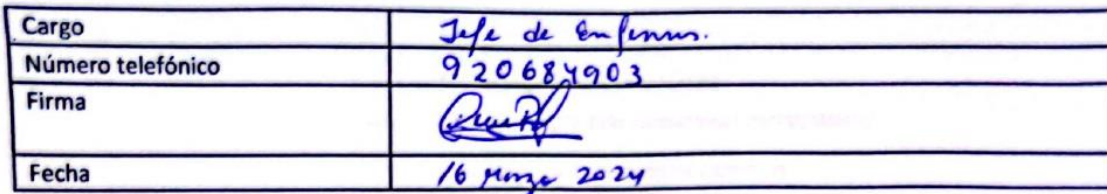 Cargo Jefe de Enferms.
Número telefónico 920684903
Firma
Fecha 16 Marzo 2024